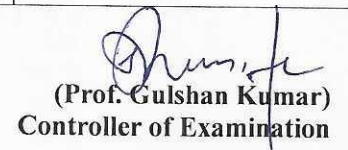 (Prof. Gulshan Kumar)
Controller of Examination